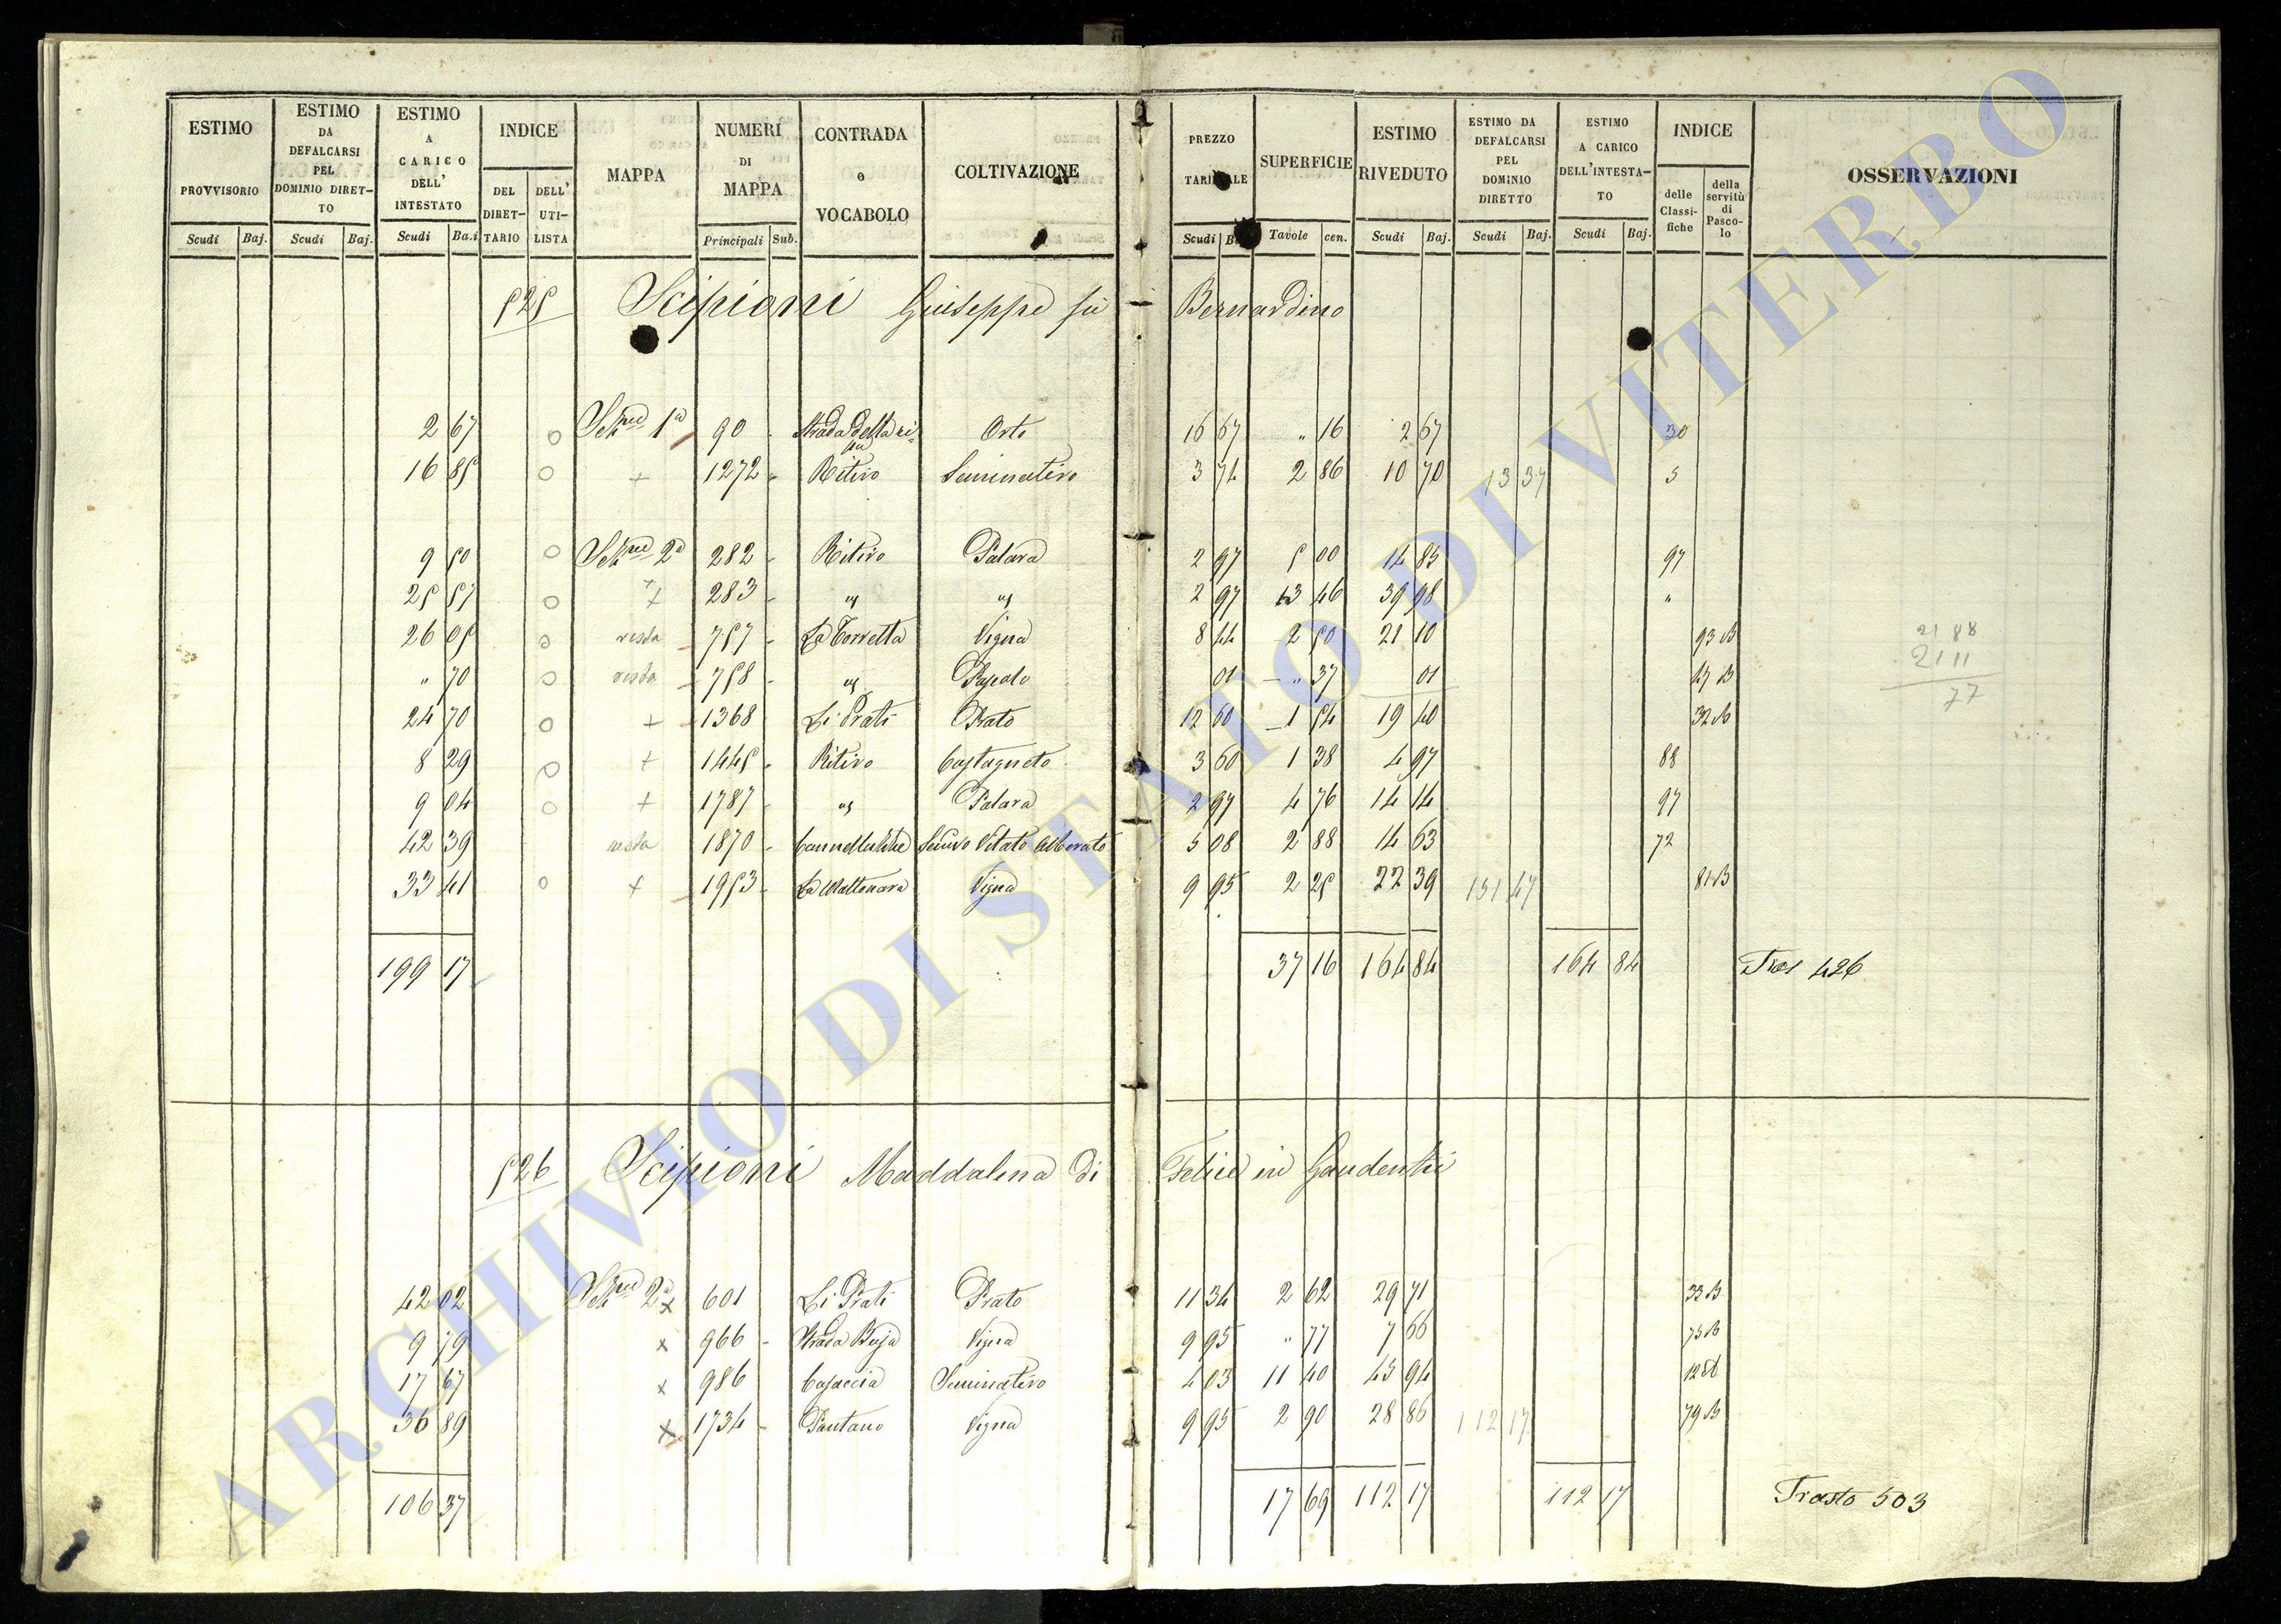 ESTIMO PROVVISORIO Scudi Baj.
ESTIMO DA DEFALCARSI PEL DOMINIO DIRET-TO Scudi Baj.
ESTIMO A CARICO DELL' INTESTATO Scudi Ba.i
INDICE DEL DIRET-TARIO DELL' UTI-LISTA
MAPPA
NUMERI DI MAPPA Principali Sub.
CONTRADA e VOCABOLO
COLTIVAZIONE
PREZZO Scudi
SUPERFICIE Tavole cen.
ESTIMO RIVEDUTO Scudi Baj.
ESTIMO DA DEFALCARSI PEL DOMINIO DIRETTO Scudi Baj.
ESTIMO A CARICO DELL'INTESTA-TO Scudi Baj.
INDICE delle Classi-fiche della servitù di Pasco-lo
OSSERVAZIONI
525 Scipioni Giuseppe fu Bernardino
2 67 o 1a 90 Strada della ri= Orto 16 67 " 16 2 67 30
16 85 o + 1272 Ritiro Seminativo 3 74 2 86 10 70 13 37 5
9 50 o 2a 282 Ritiro Palara 2 97 5 00 14 85 97
25 57 o + 283 " " 2 97 13 46 39 98 "
26 05 o resta 757 La Torretta Vigna 8 44 2 50 21 10 93 B
" 70 o resta 758 " Pascolo 01 " 37 01
24 70 o + 1368 Li Prati Prato 12 60 1 54 19 40
8 29 o + 1445 Ritiro Castagneto 3 60 1 38 4 97 88
9 04 o + 1787 " Palara 2 97 4 76 14 14 97
42 39 resta 1870 Vitato Alberato 5 08 2 88 14 63 72
33 41 o + 1953 Vigna 9 95 2 25 22 39 151 47
21 88
21 11
77
199 17 37 16 164 84 164 84 426
526 Scipioni Maddalena di Felice in Gaudenti
42 02 2a x 601 Li Prati Prato 11 34 2 62 29 71 33 B
9 79 x 966 Strada Buja Vigna 9 95 " 77 7 66
17 67 x 986 Casaccia Seminativo 4 03 11 40 45 94
36 89 x 1734 Pantano Vigna 9 95 2 90 28 86 112 17 79 B
106 37 17 69 112 17 112 17 Trasto 503
ARCHIVIO DI STATO DI VITERBO